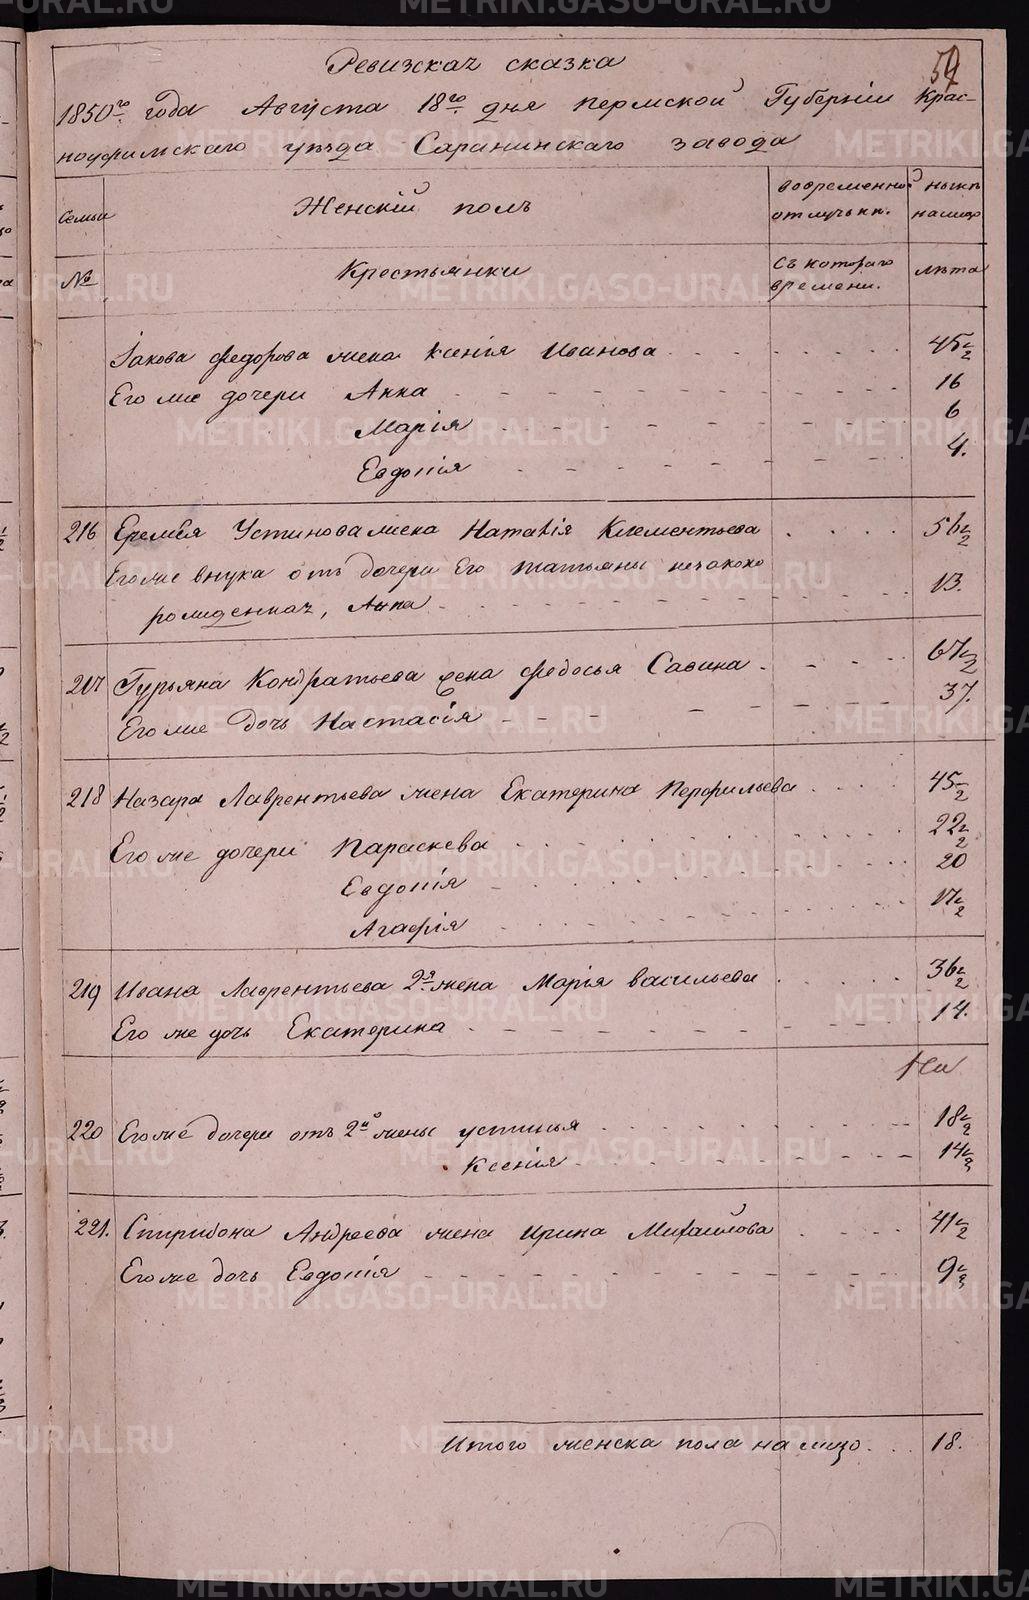 Ревизская сказка
59
1850го года Августа 18го дня Пермской Губернии Крас-
ноуфимскаго уезда Саранинскаго завода
Семьи
Женскій полъ
во временной отлучькѣ.
нынѣ на лицо
№
Крестьянки
Съ котораго времени.
лѣта
Iакова Федорова жена Ксенія Иванова 45 1/2
Его же дочери Анна 16
Марія 6
Евдокія 4.
216 Еремея Устинова жена Наталія Клементьева 56 1/2
Его же внука отъ дочери Его Татьяны незаконо
рожденная, Анна 13.
217 Гурьяна Кондратьева жена Федосья Савина 67 1/2
Его же дочь Настасія 37.
218 Назара Лаврентьева жена Екатерина Перфильева 45 1/2
Его же дочери Параскева 22 1/2
Евдокія 20
Агафія 17 1/2
219 Ивана Лаврентьева 2я жена Марія Васильева 36 1/2
Его же дочь Екатерина 14.
220 Его же дочери отъ 2й жены Устинья 18 1/2
Ксенія 14 1/2
221. Спиридона Андреева жена Ирина Михайлова 41 1/2
Его же дочь Евдокія 9 1/2
Итого женска пола на лицо 18.
METRIKI.GASO-URAL.RU